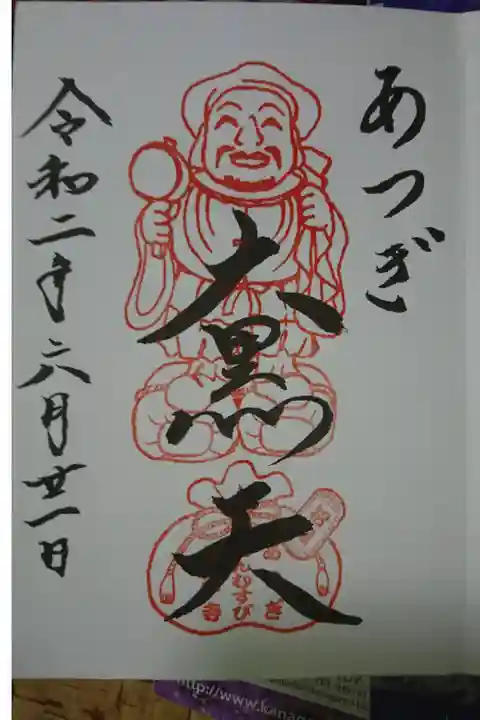 あつぎ
大黒天
令和二年六月廿一日
んむすび
寺
き
http://www.kana